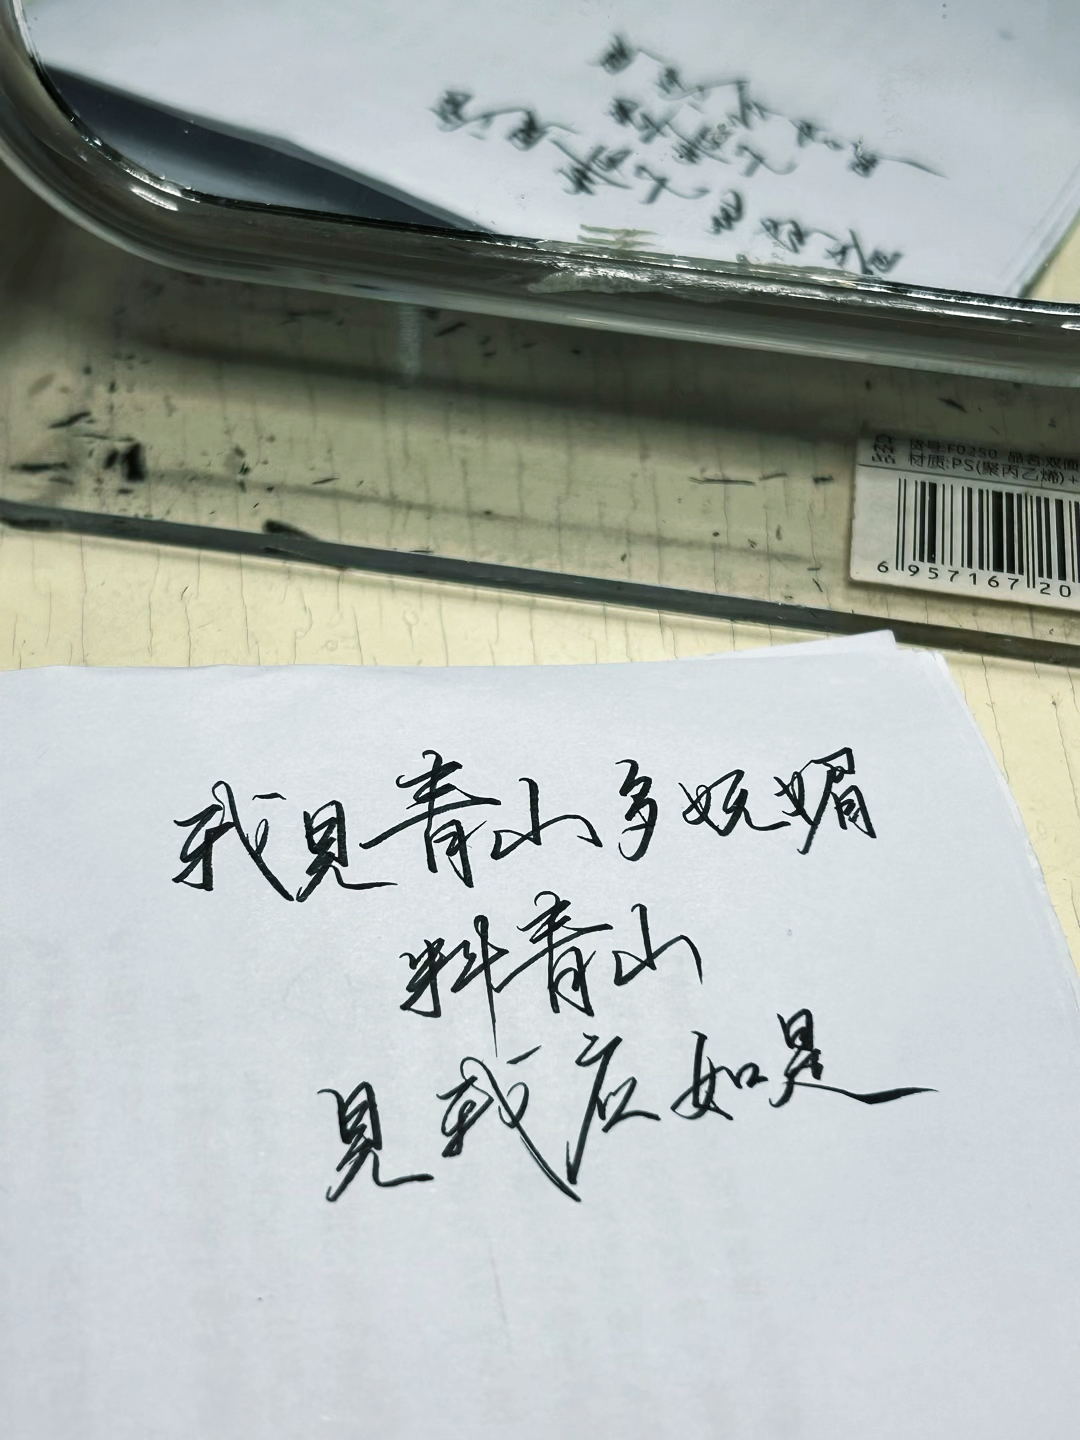 货号:F0250 品名:双面
材质:PS(聚丙乙烯)+
6 957167 20
我見青山多妩媚
料青山
見我应如是